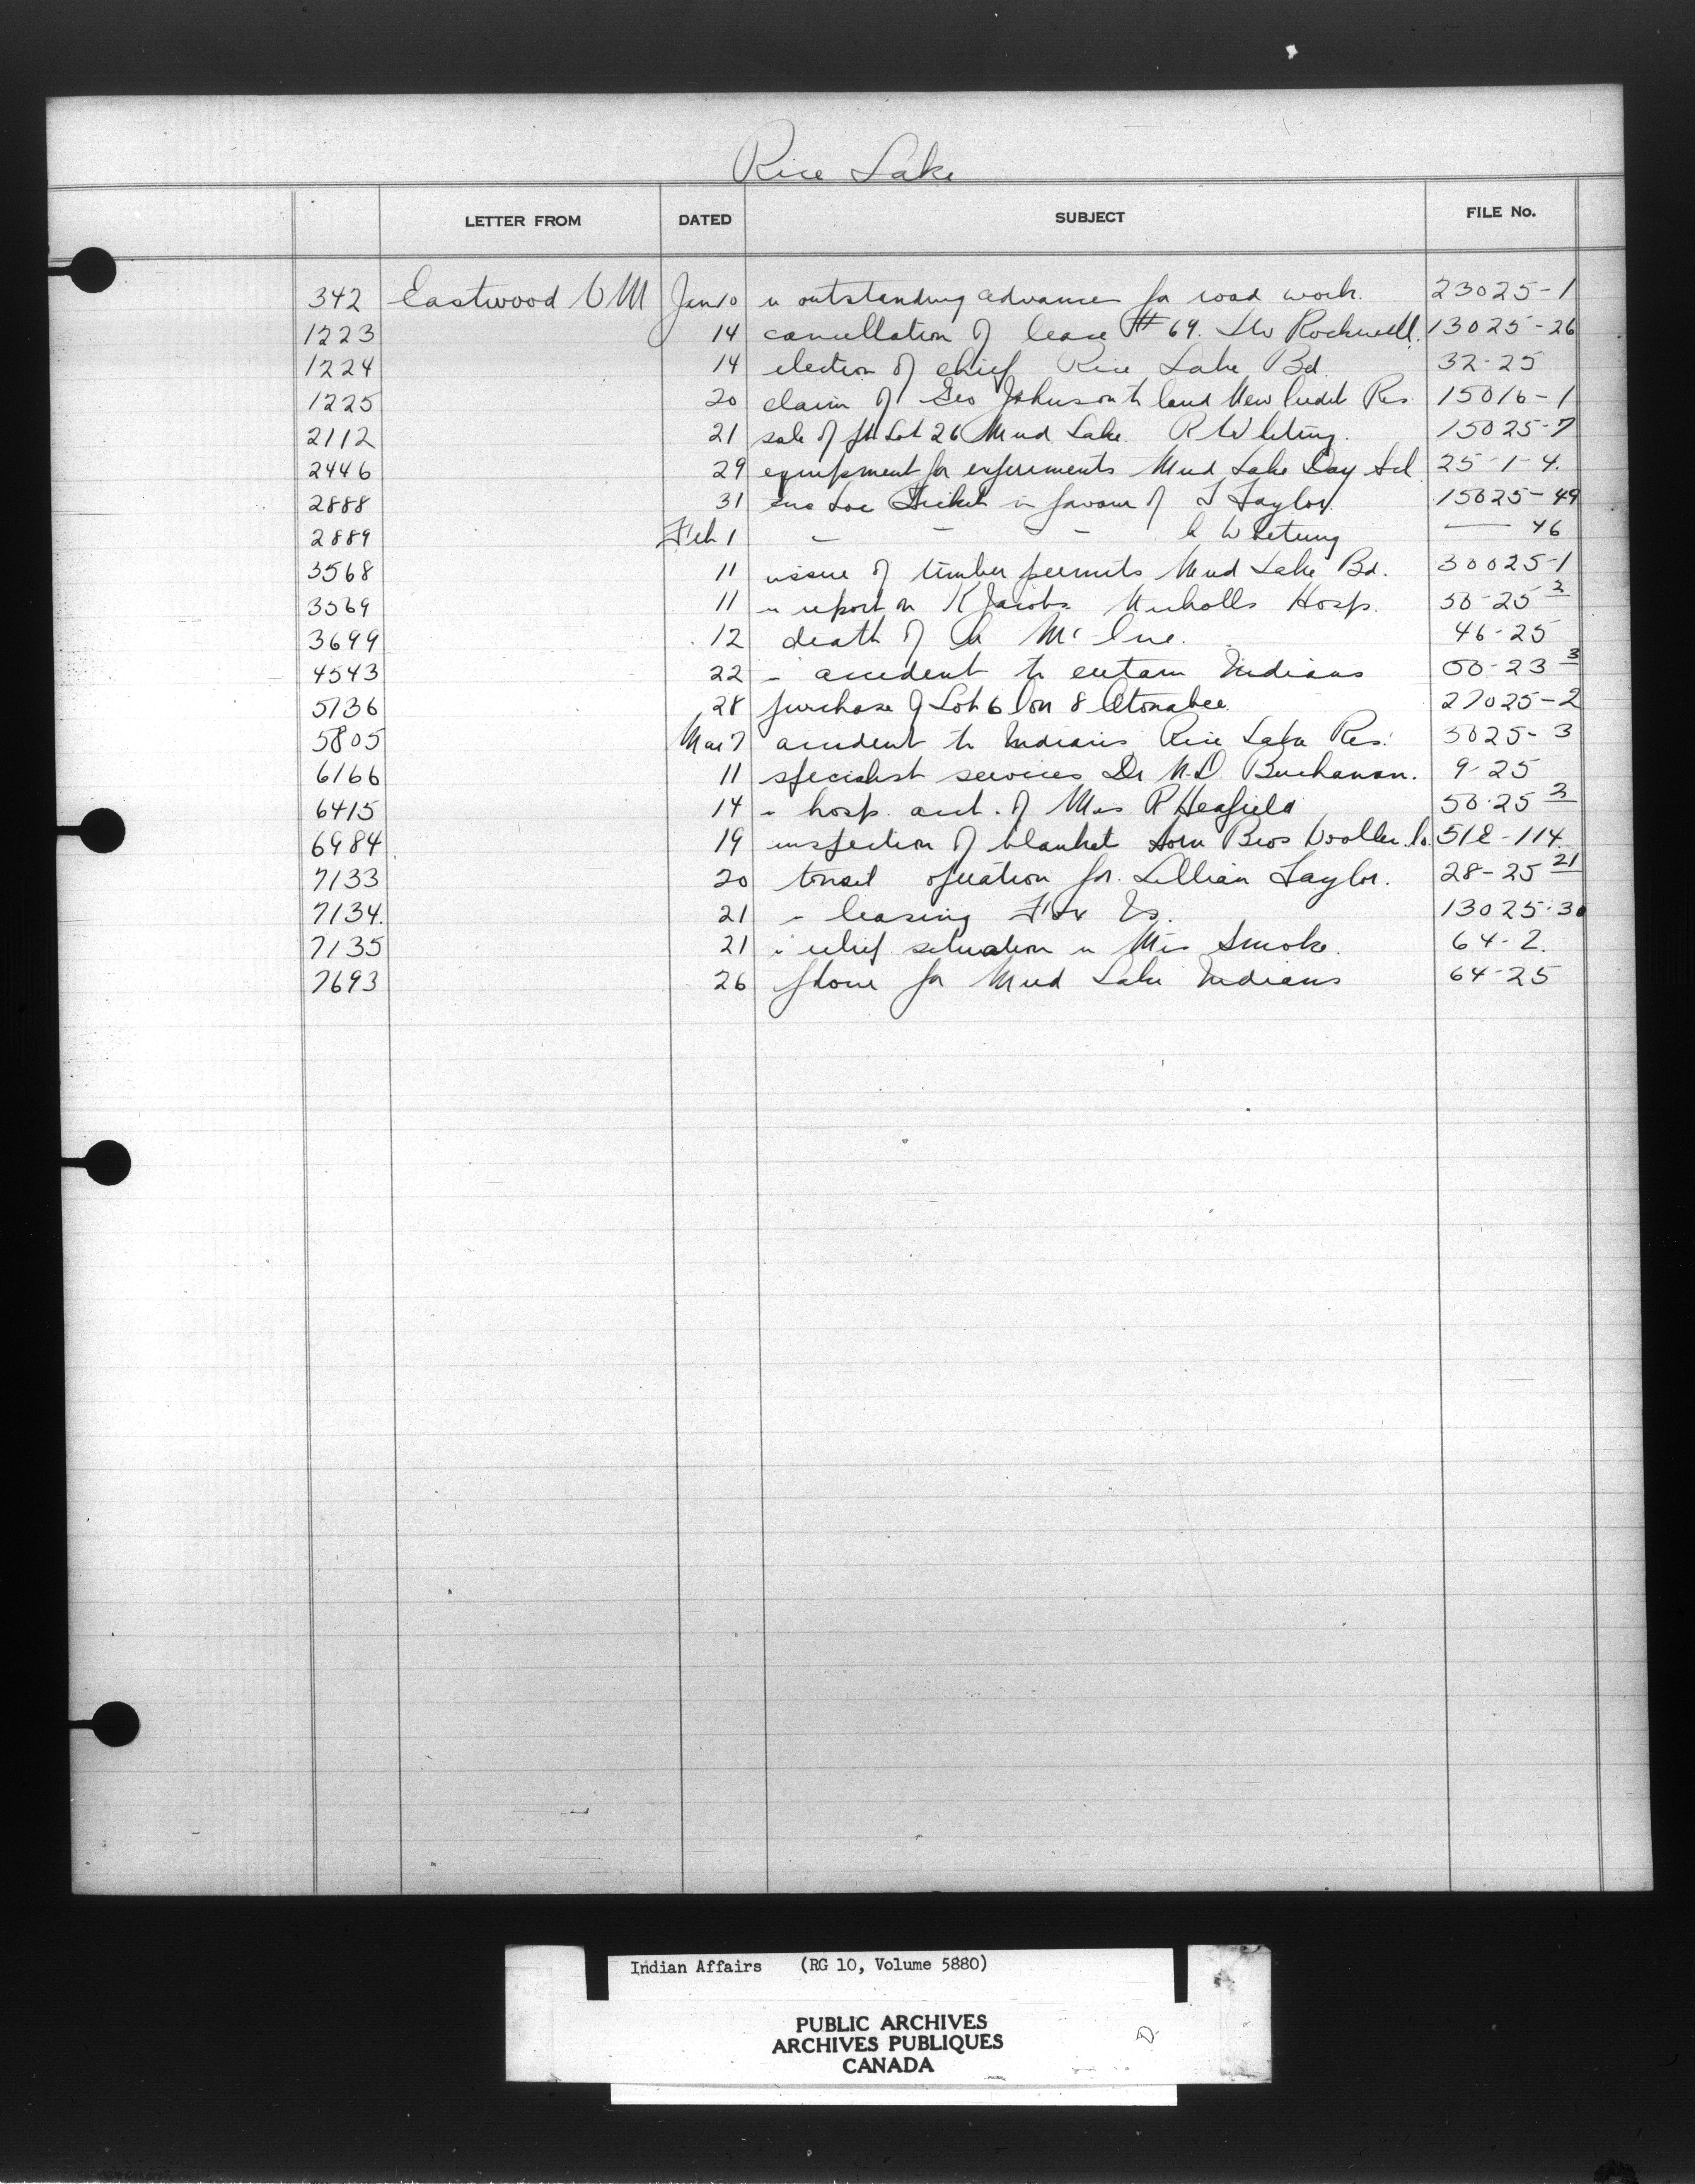 Rice Lake
LETTER FROM DATED SUBJECT FILE No.
342 Eastwood V M Jan 10 outstanding advances for road work. 23025-1
1223 14 cancellation of lease #69. Rockwell. 13025-26
1224 14 election of chief Rice Lake Bd. 32-25
1225 20 claim of Geo Johnson to land New Credit Res. 15016-1
2112 21 sale of pt Lot 26 Mud Lake R Whetung. 15025-7
2446 29 equipment for experiments Mud Lake Day Scl 25-1-4.
2888 31 enc Loc Ticket in favour of Taylor. 15025-49
2889 Feb 1 - - - Whetung — 46
3568 11 issue of timber permits Mud Lake Bd. 30025-1
3569 11 report on K Jacobs Nicholls Hosp. 50-25
3699 12 death of Mc Cue. 46-25
4543 22 accident to certain Indians 3
5736 28 purchase of Lot 6 Con 8 Otonabee. 27025-2
5805 Mar 7 accident to Indians Rice Lake Res. 3025-3
6166 11 specialist services Dr N.D. Buchanan. 9-25
6415 14 hosp. acct. of R Heafield 50-25
6984 19 inspection of blanket Horn Bros Woollen Co. 518-114.
7133 20 tonsil operation for Lillian Taylor. 28-25 21
7134. 21 leasing Fox Is. 13025-30
7135 21 relief situation Smoke. 64-2.
7693 26 flour for Mud Lake Indians 64-25
Indian Affairs (RG 10, Volume 5880)
PUBLIC ARCHIVES
ARCHIVES PUBLIQUES
CANADA